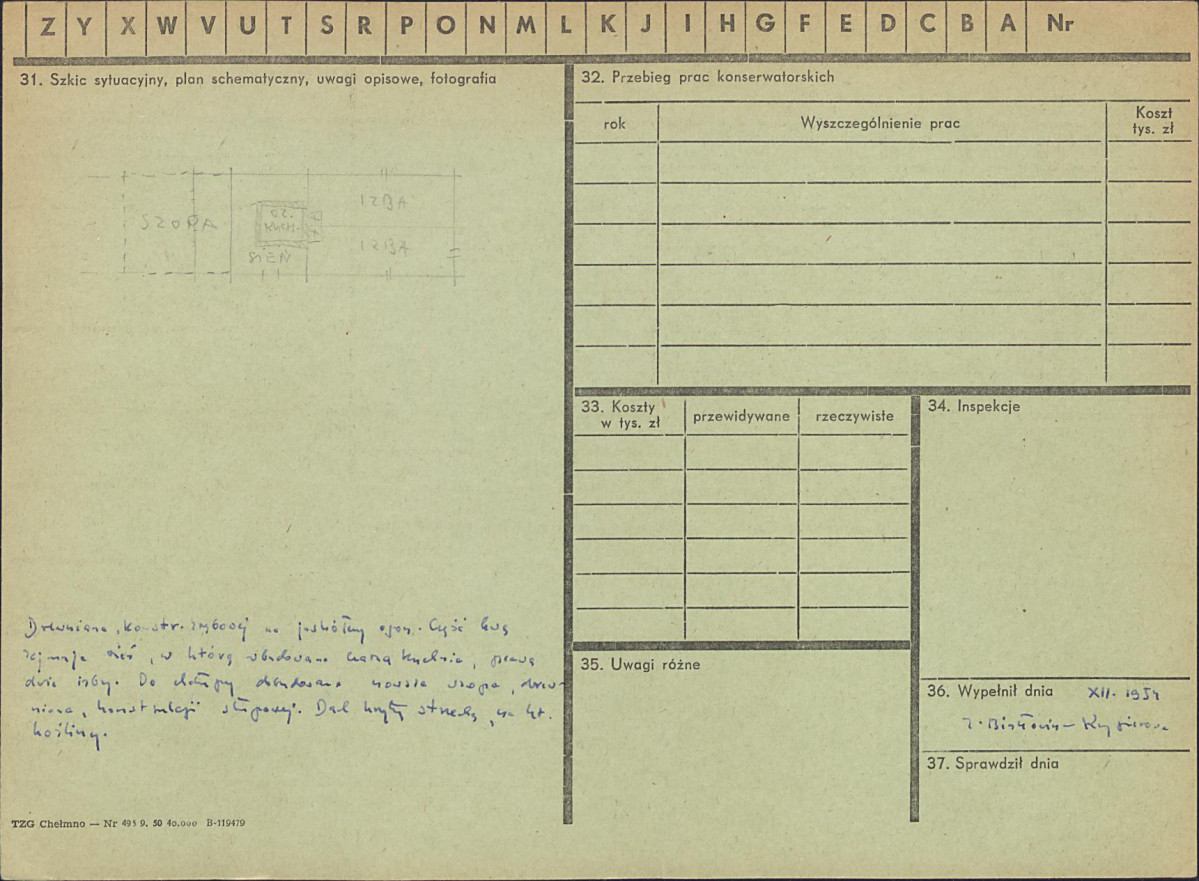 Z Y X W V U T S R P O N M L K J I H G F E D C B A Nr
31. Szkic sytuacyjny, plan schematyczny, uwagi opisowe, fotografia
SZOPA
CZ.
KUCH.
SIEŃ
IZBA
IZBA
Drewniana, konstr. zrębowej na jaskółczy ogon. Część lewą
zajmuje sień, w którą wbudowano czarną kuchnię, prawą
dwie izby. Do chałupy dobudowana nowsza szopa, drew-
niana, konstrukcji słupowej. Dach kryty strzechą, na
TZG Chełmno — Nr 495 9. 50 40.000 B-119479
32. Przebieg prac konserwatorskich
rok
Wyszczególnienie prac
Koszt
tys. zł
33. Koszty
w tys. zł
przewidywane
rzeczywiste
34. Inspekcje
35. Uwagi różne
36. Wypełnił dnia XII. 1954
37. Sprawdził dnia